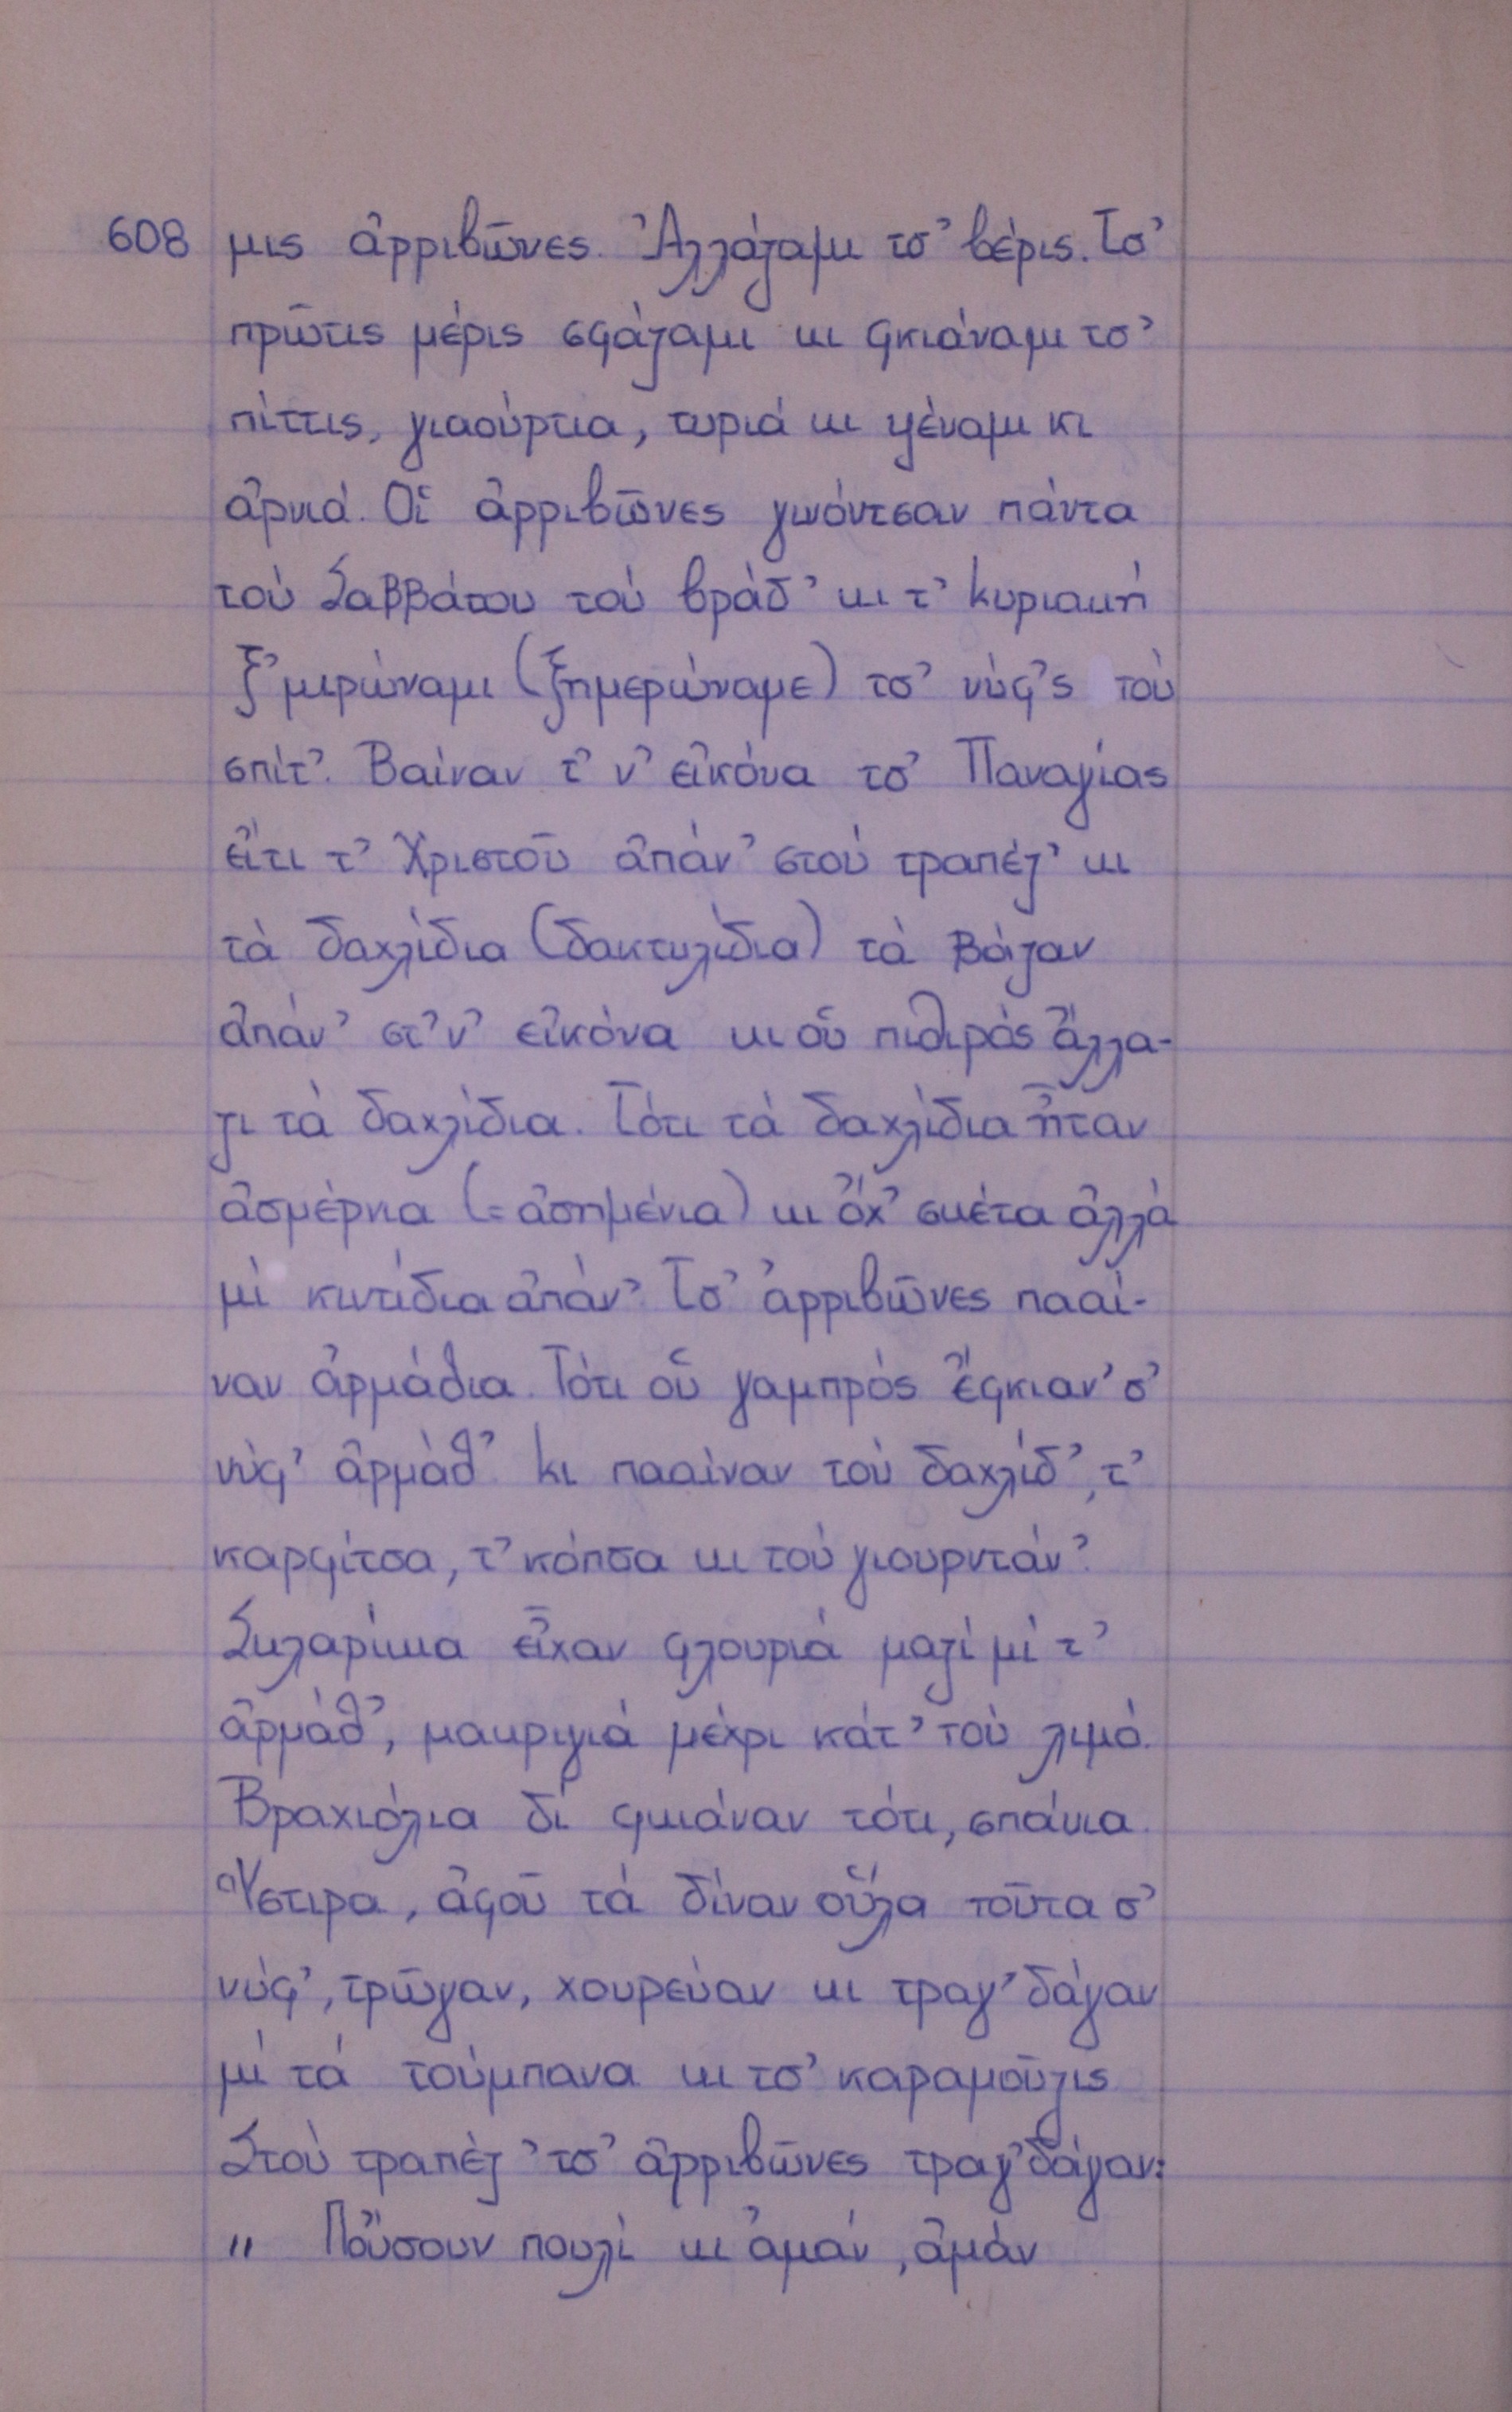 608 μις ἀρριβῶνες. Ἀλλάζαμι τσ᾿ βέρις. Τσ᾿
πρῶτις μέρις σφάζαμι κι φκιάναμι τσ᾿
πίττις, γιαούρτια, τυριά κι ψέναμι κι
ἀρνιά. Οἱ ἀρριβῶνες γινόντσαν πάντα
τού Σαββάτου τού βράδ᾿ κι τ᾿ Κυριακή
ξ᾿μιρώναμι (ξημερώναμε) τσ᾿ νύφ᾿ς τού
σπίτ᾿. Βαίναν τ᾿ ν᾿ εἰκόνα τσ᾿ Παναγίας
εἴτι τ᾿ Χριστοῦ ἀπάν᾿ στού τραπέζ᾿ κι
τά δαχλίδια (δακτυλίδια) τά βάζαν
ἀπάν᾿ στ᾿ν᾿ εἰκόνα κι οὑ πιθιρός ἄλλα-
ζι τά δαχλίδια. Τότι τά δαχλίδια ἦταν
ἀσμέρνια (=ἀσημένια) κι ὄχ᾿ σκέτα ἀλλά
μί κιντίδια ἀπάν᾿. Τσ᾿ ἀρριβῶνες πααί-
ναν ἀρμάθια. Τότι οὑ γαμπρός ἔφκιαν᾿ σ᾿
νύφ᾿ ἀρμάθ᾿ κι πααίναν τού δαχλίδ᾿, τ᾿
καρφίτσα, τ᾿ κόπσα κι τού γιουρντάν᾿.
Σκλαρίκια εἶχαν φλουριά μαζί μί τ᾿
ἀρμάθ᾿, μακριγιά μέχρι κάτ᾿ τού λιμό.
Βραχιόλια δί φκιάναν τότι, σπάνια.
Ὕστιρα, ἀφοῦ τά δίναν οὕλα τοῦτα σ᾿
νύφ᾿, τρῶγαν, χουρεύαν κι τραγ᾿δάγαν
μί τά τούμπανα κι τσ᾿ καραμοῦζις
Στού τραπέζ᾿ τσ᾿ ἀρριβῶνες τραγ᾿δάγαν:
" Ποὔσουν πουλί κι ἀμάν, ἀμάν